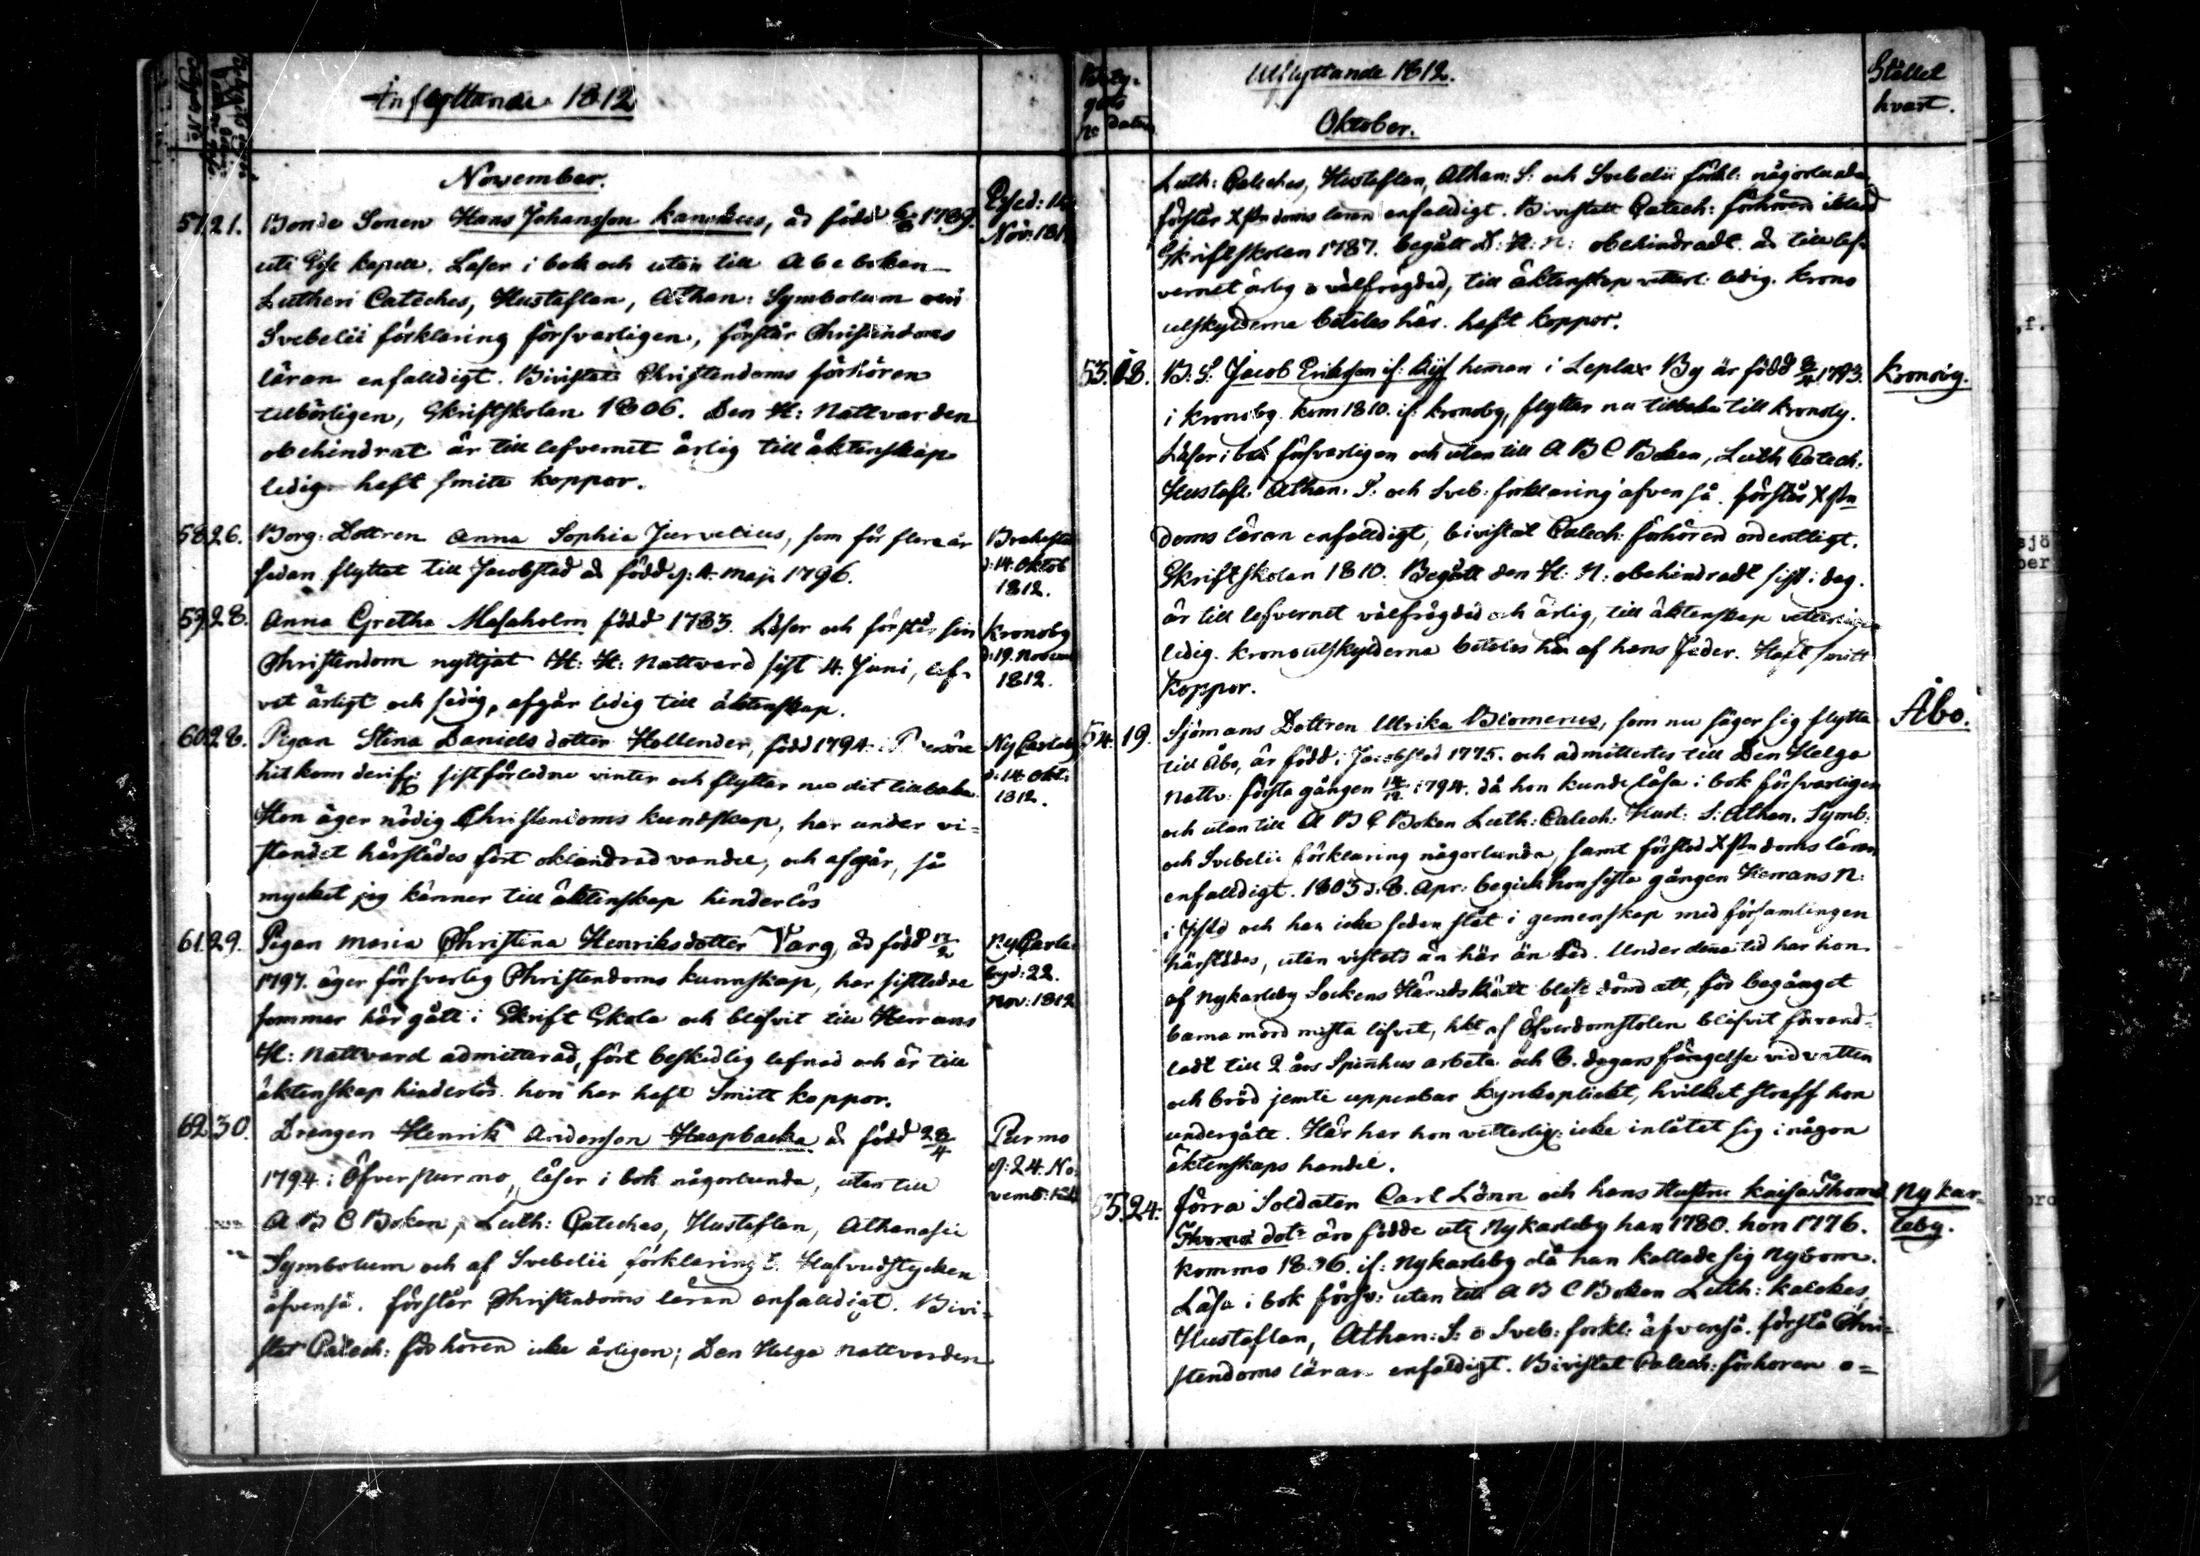 Inflyttande 1812
November.
57. 21. Bonde Sonen Hans Johansson Kanckus, är född 1789. Esse d: 14 Nov: 181
uti Esse kapell. Läser i bok och utan till Abeboken
Lutheri Cateches, Hustaflan, Athan: Symbolum och
Svebelii förklaring försvarligen, förstår Christendoms
läran enfaldigt. Bivistat Christendoms förhören
tilbörligen, Skriftskolan 1806. Den H: Nattvarden
obehindrat är till lefvernet ärlig till äktenskap
ledig. haft smitt koppor.
58. 26. Borg: Dottren Anna Sophia Jurvelius, som för flera år Brahesta d: 14. Oktob 1812.
sedan flyttat till Jacobstad är född d: 4. Maji 1796.
59. 28. Anna Gretha Masaholm född 1783. Läser och förstår sin Kronoby d: 19. Novem 1812.
Christendom nyttjat H: H: Nattvard sist 4. Juni, lef-
vet ärligt och sedig, afgår ledig till äktenskap.
60. 28. Pigan Stina Daniels dotter Hollender, född 1794 i Ny Carleby d: 14 Okt: 1812.
hit kom derifr: sistförledne vinter och flyttar nu dit tillbaka
Hon äger nödig Christendoms kundskap, har under vi-
standet härstädes fört oklandrad vandel, och afgår, så
mycket jag känner till äktenskap hinderlös
61. 29. Pigan Maria Christina Henriksdotter Varg, är född 17/2 Ny Carle- by d: 22. Nov: 1812
1797. äger försvarlig Christendoms kunnskap, har sistledne
sommar här gått i Skrift Skola och blifvit till Herrans
H: Nattvard admitterad, fört beskedlig lefnad och är till
äktenskap hinderlös. hon har haft Smitt koppor.
62. 30. Drengen Henrik Anderson Haapbacka är född 28/4 Purmo d: 24. No- vemb: 1812
1794 i Öfverpurmo, läser i bok någorlunda, utan till
A B C Boken, Luth: Cateches, Hustaflan, Athanasii
Symbolum och af Svebelii förklaring 5. Hufvudstycken
äfvenså. förstår Christendoms läran enfaldigt. Bivi-
stat Catech: förhören icke årligen; Den Helga Nattvarden
Utflyttande 1812.
Oktober.
Bety- gets no datum
Stället hvart.
Luth: Cateches, Hustaflan, Athan: S: och Svebelii förkl: någorlunda,
förstår Xstndoms läran enfaldigt. Bivistatt Catech: förhören ibland
Skriftskolan 1787. begått D: H: N: obehindradt. är till lef-
vernet ärlig o välfrägdad, till äktenskap vetterl: ledig. Krono
utskylderna betalas här. haft koppor.
53. 18. B: S: Jacob Eriksson if: Rijf heman i Leplax By är född 1793. Kronoby.
i Kronoby. kom 1810. if: Kronoby, flyttar nu tilbaka till Kronoby.
Läser i bok försvarligen och utan till A B C Boken, Luth Catech:
Hustafl: Athan. S: och Sveb: förklaring äfven så. förstår Xstn
doms läran enfalldigt, bivistat Catech: förhören ordentligt.
Skriftskolan 1810. Begått den H: N: obehindradt sist i dag.
är till lefvernet välfrägdad och ärlig, till äktenskap vetterligen
ledig. Kronoutskylderna betalas här af hans Fader. Haft smitt
koppor.
54. 19. Sjömans Dottren Ulrika Biomerus, som nu säger sig flytta Åbo.
till Åbo, är född i Jacobstad 1775. och admittertes till Den Helga
Nattv: första gången 14/12 1794. då hon kunde läsa i bok försvarligen
och utan till A B C Boken Luth: Catech: Hust: S: Athan. Symb:
och Svebelii förklaring någorlunda, samt förstod Xstndoms läran
enfalldigt. 1803 d: 8. Apr: begick hon sista gången Herrans N:
i Jstd och har icke sedan ståt i gemenskap med församlingen
härstädes, utan vistats än här än der. Under denna tid har hon
af Nykarleby Sockens Härads Rätt blifvit dömd att, för begånget
barna mord mista lifvet, hkt af Öfverdomstolen blifvit förvand-
ladt till 2 års Spinhus arbete och 8. dagars fängelse vid vatten
och bröd jemte uppenbar kyrkoplickt, hvilket straff hon
undergått. Här har hon vetterlig: icke inlåtet sig i någon
äktenskaps handel.
55. 24. Förra Soldaten Carl Lönn och hans Hustru Kaisa Thoms Nykar- leby.
dotr äro födde uti Nykarleby han 1780. hon 1776.
kommo 1806. if: Nykarleby då han kallade sig Nybom.
Läsa i bok försv: utan till A B C Boken Luth: katekes,
Hustaflan, Athan: S: o Sveb: förkl: äfvenså. förstå Chri-
stendoms läran enfaldigt. Bivistat Catech: förhören o-